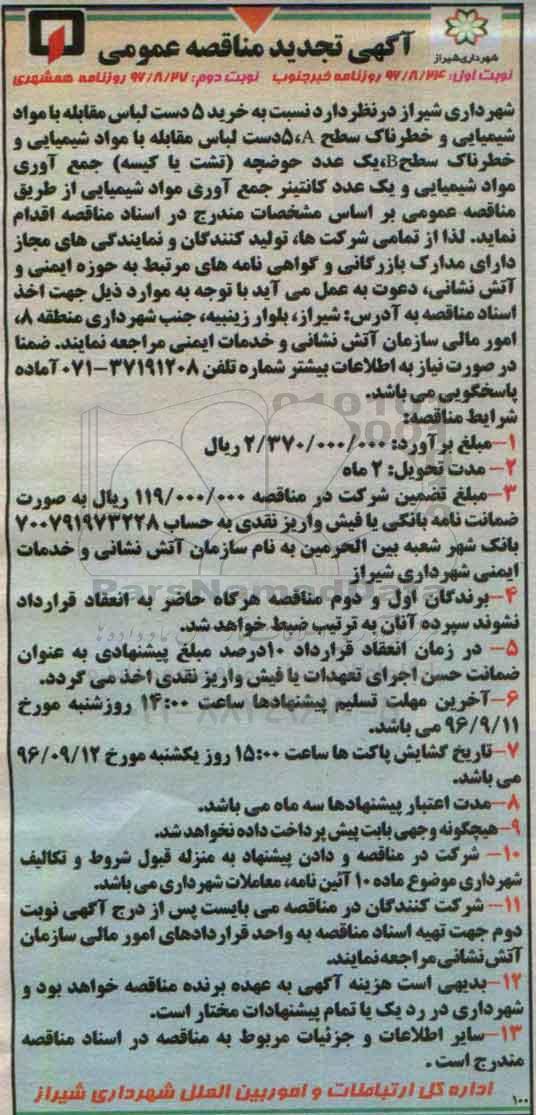 شهرداری شیراز
آگهی تجدید مناقصه عمومی
نوبت اول: ۹۶/۸/۲۴ روزنامه خبرجنوب نوبت دوم: ۹۶/۸/۲۷ روزنامه همشهری
شهرداری شیراز در نظر دارد نسبت به خرید ۵ دست لباس مقابله با مواد
شیمیایی و خطرناک سطح A، ۵دست لباس مقابله با مواد شیمیایی و
خطرناک سطحB،یک عدد حوضچه (تشت یا کیسه) جمع آوری
مواد شیمیایی و یک عدد کانتینر جمع آوری مواد شیمیایی از طریق
مناقصه عمومی بر اساس مشخصات مندرج در اسناد مناقصه اقدام
نماید. لذا از تمامی شرکت ها، تولید کنندگان و نمایندگی های مجاز
دارای مدارک بازرگانی و گواهی نامه های مرتبط به حوزه ایمنی و
آتش نشانی، دعوت به عمل می آید با توجه به موارد ذیل جهت اخذ
اسناد مناقصه به آدرس: شیراز، بلوار زینبیه، جنب شهرداری منطقه ۸،
امور مالی سازمان آتش نشانی و خدمات ایمنی مراجعه نمایند. ضمنا
در صورت نیاز به اطلاعات بیشتر شماره تلفن ۳۷۱۹۱۲۰۸-۰۷۱ آماده
پاسخگویی می باشد.
شرایط مناقصه:
۱-مبلغ برآورد: ۲/۳۷۰/۰۰۰/۰۰۰ ریال
۲- مدت تحویل: ۲ ماه
۳-مبلغ تضمین شرکت در مناقصه ۱۱۹/۰۰۰/۰۰۰ ریال به صورت
ضمانت نامه بانکی یا فیش واریز نقدی به حساب ۷۰۰۷۹۱۹۷۳۲۲۸
بانک شهر شعبه بین الحرمین به نام سازمان آتش نشانی و خدمات
ایمنی شهرداری شیراز
۴-برندگان اول و دوم مناقصه هرگاه حاضر به انعقاد قرارداد
نشوند سپرده آنان به ترتیب ضبط خواهد شد.
۵- در زمان انعقاد قرارداد ۱۰درصد مبلغ پیشنهادی به عنوان
ضمانت حسن اجرای تعهدات یا فیش واریز نقدی اخذ می گردد.
۶-آخرین مهلت تسلیم پیشنهادها ساعت ۱۴:۰۰ روزشنبه مورخ
۹۶/۹/۱۱ می باشد.
۷-تاریخ گشایش پاکت ها ساعت ۱۵:۰۰ روز یکشنبه مورخ ۹۶/۰۹/۱۲
می باشد.
۸-مدت اعتبار پیشنهادها سه ماه می باشد.
۹-هیچگونه وجهی بابت پیش پرداخت داده نخواهد شد.
۱۰- شرکت در مناقصه و دادن پیشنهاد به منزله قبول شروط و تکالیف
شهرداری موضوع ماده ۱۰ آئین نامه، معاملات شهرداری می باشد.
۱۱- شرکت کنندگان در مناقصه می بایست پس از درج آگهی نوبت
دوم جهت تهیه اسناد مناقصه به واحد قراردادهای امور مالی سازمان
آتش نشانی مراجعه نمایند.
۱۲-بدیهی است هزینه آگهی به عهده برنده مناقصه خواهد بود و
شهرداری در رد یک یا تمام پیشنهادات مختار است.
۱۳-سایر اطلاعات و جزئیات مربوط به مناقصه در اسناد مناقصه
مندرج است .
اداره کل ارتباطات و امور بین الملل شهرداری شیراز
۱۰۰
ParsNamadData